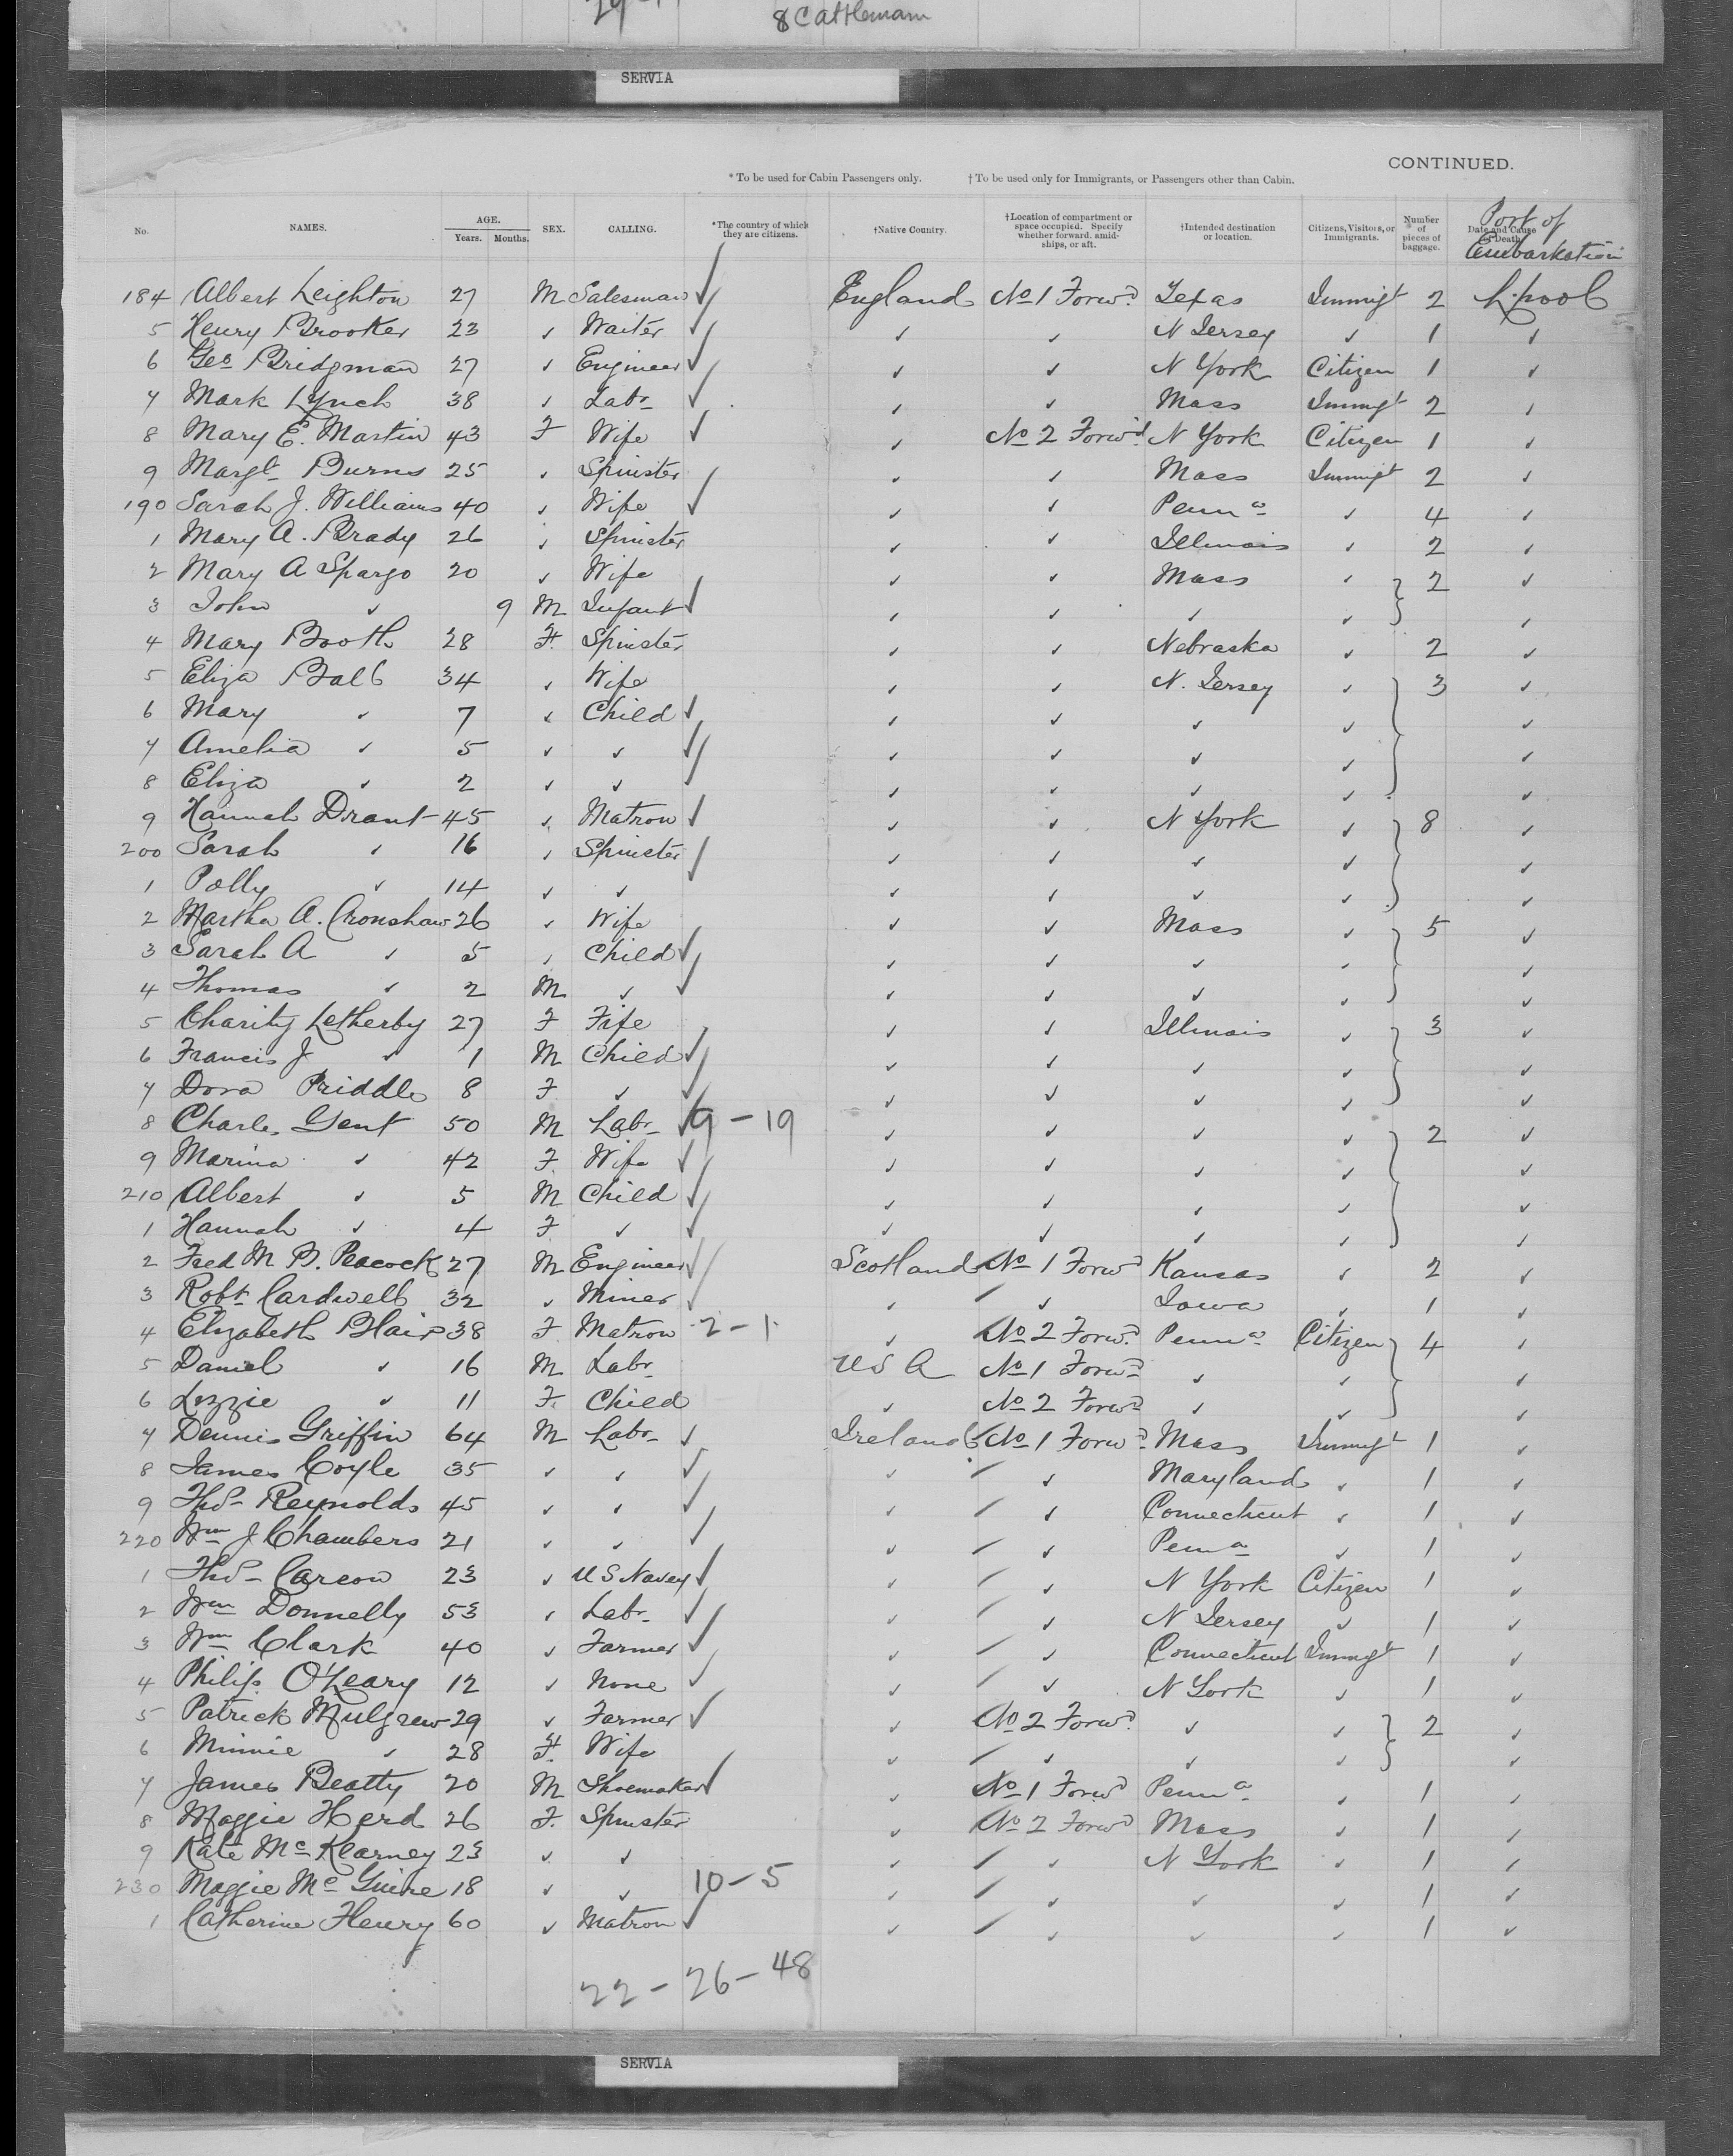 8 Cattlemam
SERVIA
CONTINUED.
* To be used for Cabin Passengers only. † To be used only for Immigrants, or Passengers other than Cabin.
No. NAMES. AGE. Years. Months. SEX. CALLING. *The country of which they are citizens. †Native Country. †Location of compartment or space occupied. Specify whether forward, amidships, or aft. †Intended destination or location. Citizens, Visitors, or Immigrants. Number of pieces of baggage. Date and Cause of Death. Port of Embarkation
184 Albert Leighton 27 M Salesman ✓ England No 1 Forwd Texas Immigt 2 L.pool
5 Henry Brooker 23 ✓ Waiter ✓ ✓ ✓ N Jersey ✓ 1 ✓
6 Geo Bridgman 27 ✓ Engineer ✓ ✓ ✓ N York Citizen 1 ✓
7 Mark Lynch 38 ✓ Labr ✓ ✓ ✓ Mass Immigt 2 ✓
8 Mary E. Martin 43 F Wife ✓ ✓ No 2 Forwd N York Citizen 1 ✓
9 Margt Burns 25 ✓ Spinster ✓ ✓ Mass Immigt 2 ✓
190 Sarah J. Williams 40 ✓ Wife ✓ ✓ ✓ Penna ✓ 4 ✓
1 Mary A. Brady 26 ✓ Spinster ✓ ✓ Illinois ✓ 2 ✓
2 Mary A Spargo 20 ✓ Wife ✓ ✓ Mass ✓ 2 ✓
3 John ✓ 9 M Infant ✓ ✓ ✓ ✓ ✓ ✓
4 Mary Booth 28 F. Spinster ✓ ✓ Nebraska ✓ 2 ✓
5 Eliza Ball 34 ✓ Wife ✓ ✓ N. Jersey ✓ 3 ✓
6 Mary ✓ 7 ✓ Child ✓ ✓ ✓ ✓ ✓ ✓
7 Amelia ✓ 5 ✓ ✓ ✓ ✓ ✓ ✓ ✓ ✓
8 Eliza ✓ 2 ✓ ✓ ✓ ✓ ✓ ✓ ✓ ✓
9 Hannah Drant 45 ✓ Matron ✓ ✓ ✓ N York ✓ 8 ✓
200 Sarah ✓ 16 ✓ Spinster ✓ ✓ ✓ ✓ ✓ ✓
1 Polly ✓ 14 ✓ ✓ ✓ ✓ ✓ ✓ ✓
2 Martha A. Cronshaw 26 ✓ Wife ✓ ✓ Mass ✓ 5 ✓
3 Sarah A ✓ 5 ✓ Child ✓ ✓ ✓ ✓ ✓ ✓
4 Thomas ✓ 2 M ✓ ✓ ✓ ✓ ✓ ✓ ✓
5 Charity Letherby 27 F Fife ✓ ✓ Illinois ✓ 3 ✓
6 Francis J ✓ 1 M Child ✓ ✓ ✓ ✓ ✓ ✓
7 Dora Priddle 8 F. ✓ ✓ ✓ ✓ ✓ ✓ ✓
8 Charles Gent 50 M Labr ✓ 9-19 ✓ ✓ ✓ ✓ 2 ✓
9 Marina ✓ 42 F. Wife ✓ ✓ ✓ ✓ ✓ ✓
210 Albert ✓ 5 M Child ✓ ✓ ✓ ✓ ✓ ✓
1 Hannah ✓ 4 F ✓ ✓ ✓ ✓ ✓ ✓ ✓
2 Fred M B. Peacock 27 M Engineer ✓ Scotland No 1 Forwd Kansas ✓ 2 ✓
3 Robt Cardwell 32 ✓ Miner ✓ ✓ ✓ Iowa ✓ 1 ✓
4 Elizabeth Blair 38 F. Matron 2-1 ✓ No 2 Forwd Penna Citizen 4 ✓
5 Daniel ✓ 16 M Labr U S A No 1 Forwd ✓ ✓ ✓
6 Lizzie ✓ 11 F. Child ✓ No 2 Forwd ✓ ✓ ✓
7 Dennis Griffin 64 M Labr ✓ Ireland No 1 Forwd Mass Immigt 1 ✓
8 James Coyle 35 ✓ ✓ ✓ ✓ ✓ Maryland ✓ 1 ✓
9 Thos Reynolds 45 ✓ ✓ ✓ ✓ ✓ Connecticut ✓ 1 ✓
220 Wm J Chambers 21 ✓ ✓ ✓ ✓ ✓ Penna ✓ 1 ✓
1 Thos Carson 23 ✓ U S Navey ✓ ✓ ✓ N York Citizen 1 ✓
2 Wm Donnelly 53 ✓ Labr ✓ ✓ ✓ N Jersey ✓ 1 ✓
3 Wm Clark 40 ✓ Farmer ✓ ✓ ✓ Connecticut Immigt 1 ✓
4 Philip O'Leary 12 ✓ None ✓ ✓ ✓ N York ✓ 1 ✓
5 Patrick Mulgrew 29 ✓ Farmer ✓ ✓ No 2 Forwd ✓ ✓ 2 ✓
6 Minnie ✓ 28 F. Wife ✓ ✓ ✓ ✓ ✓
7 James Beatty 20 M Shoemaker ✓ ✓ No 1 Forwd Penna ✓ 1 ✓
8 Maggie Herd 26 F. Spinster ✓ No 2 Forwd Mass ✓ 1 ✓
9 Kate Mc Kearney 23 ✓ ✓ ✓ ✓ N York ✓ 1 ✓
230 Maggie Mc Guire 18 ✓ ✓ 10-5 ✓ ✓ ✓ ✓ 1 ✓
1 Catherine Henry 60 ✓ Matron ✓ ✓ ✓ ✓ ✓ 1 ✓
22-26-48
SERVIA